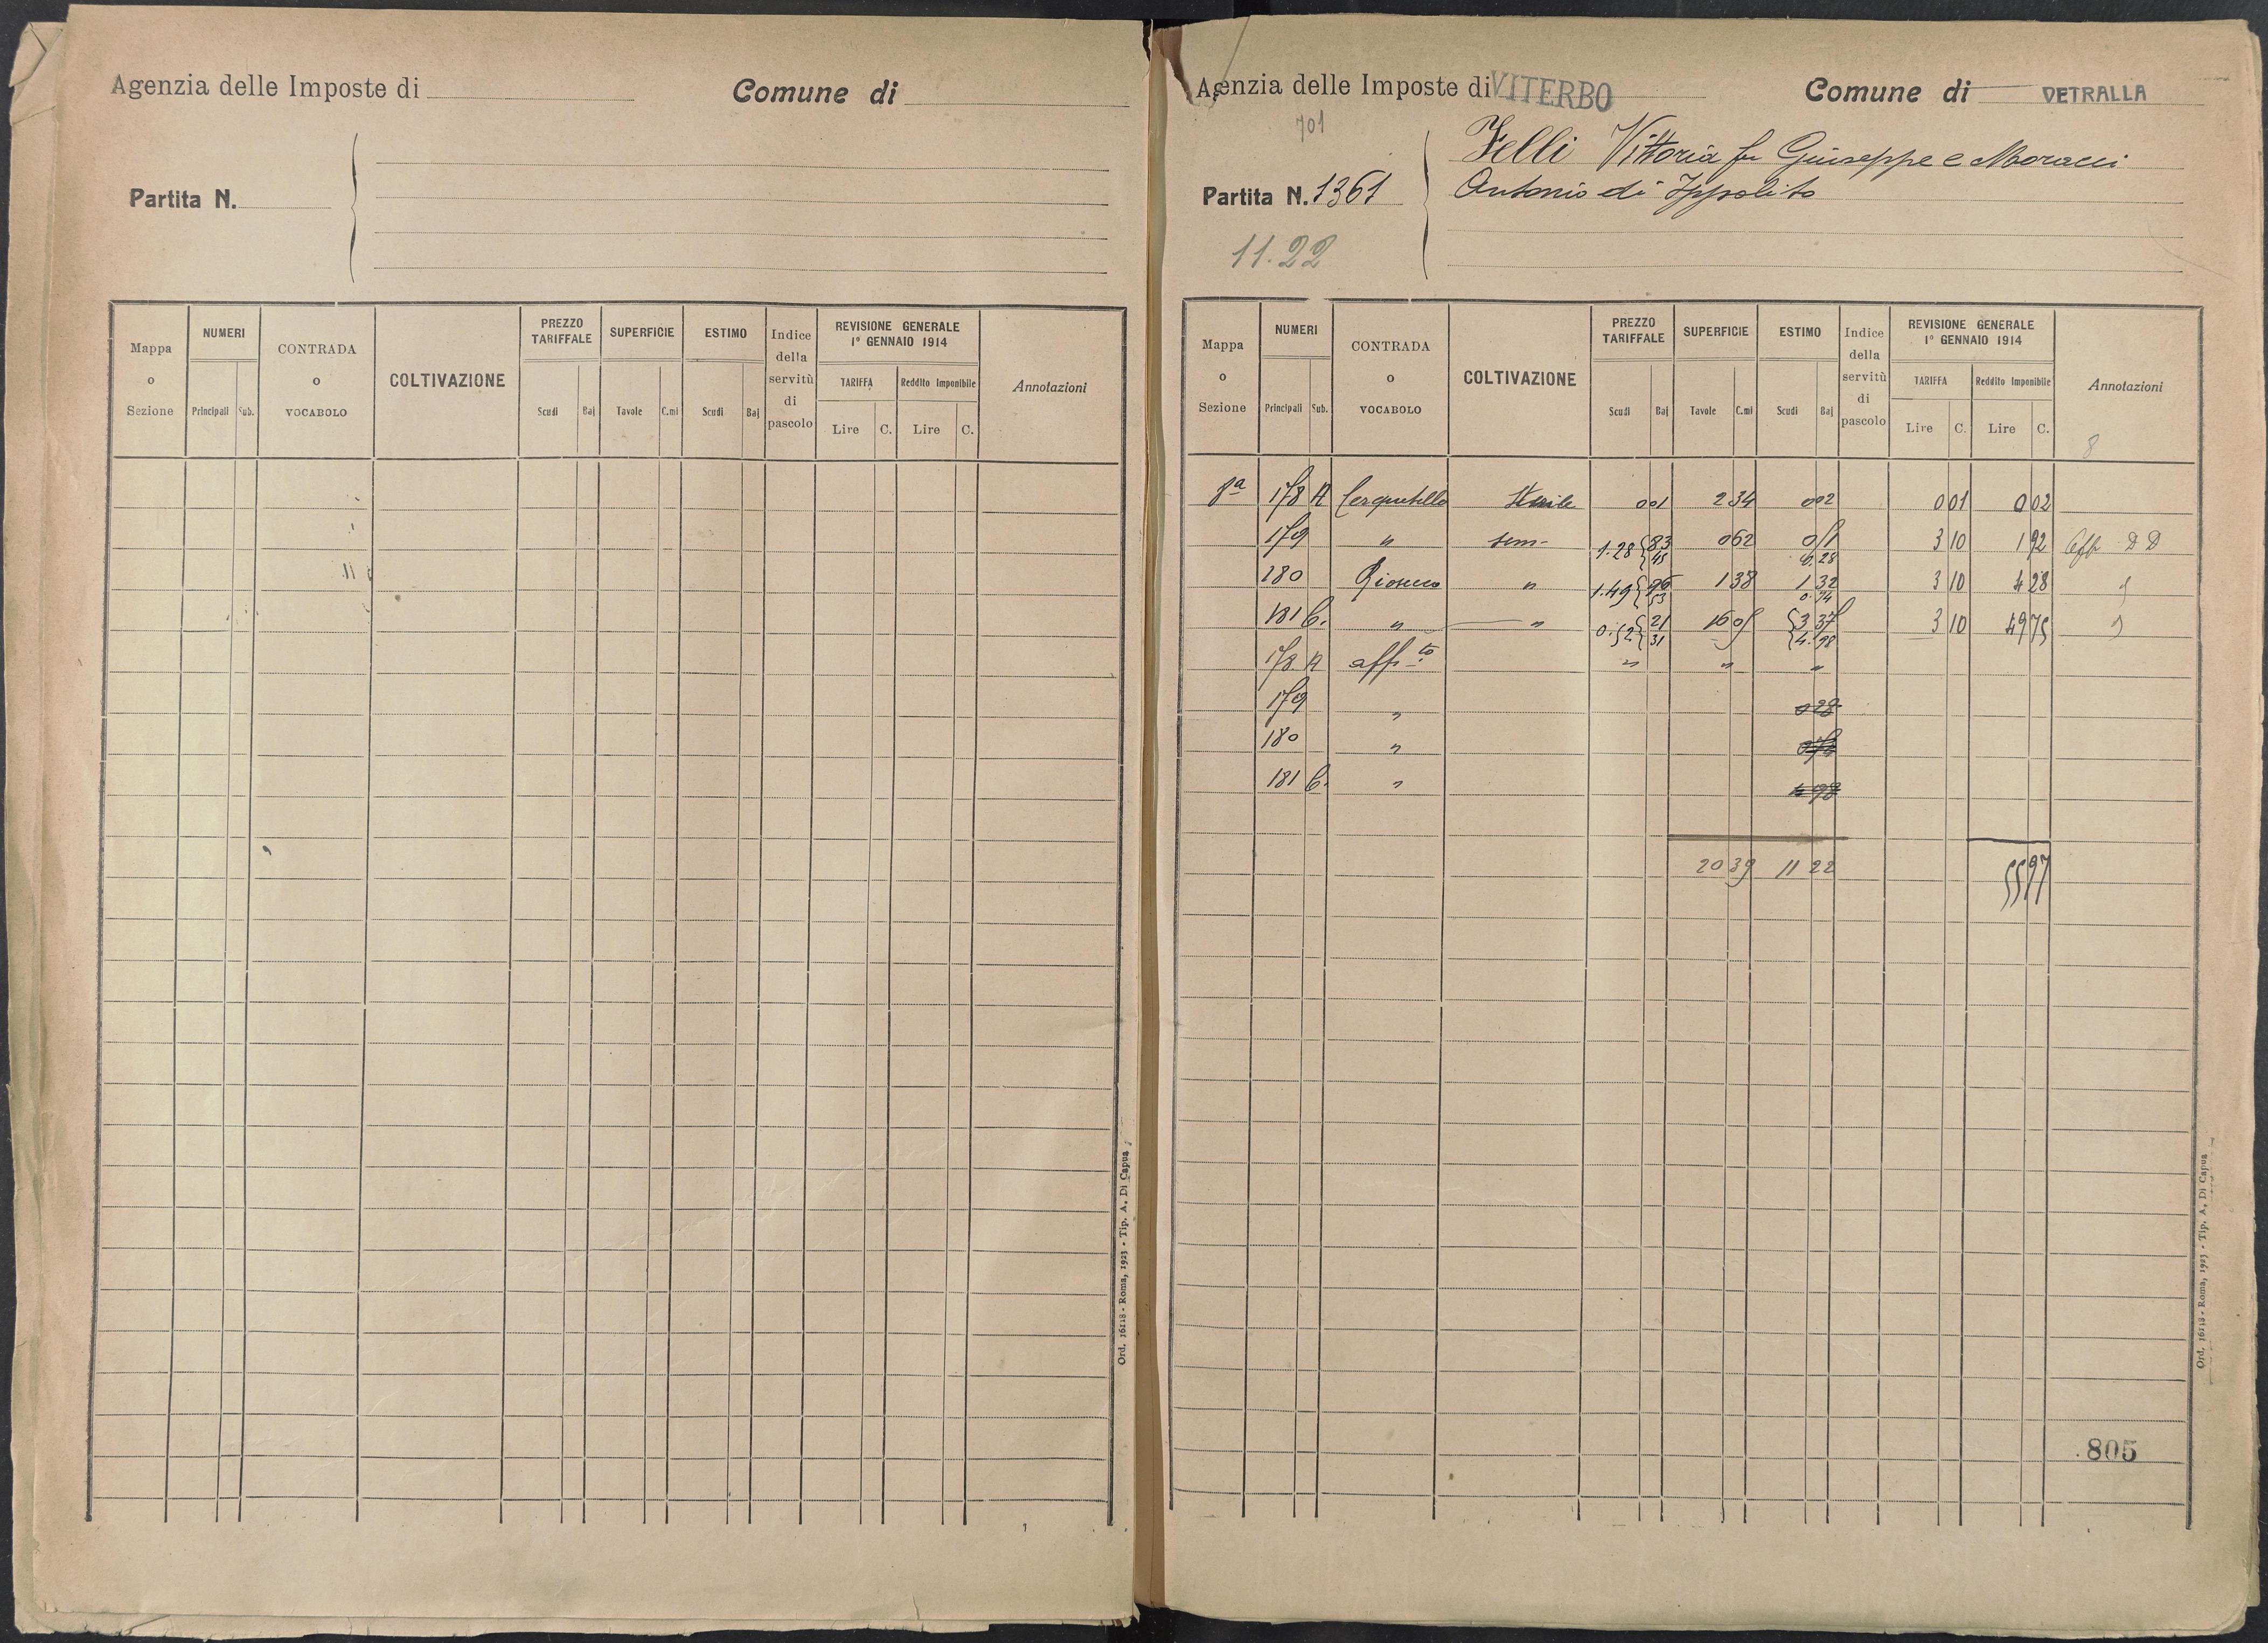 Agenzia delle Imposte di
Comune di
Partita N.
Mappa o Sezione
NUMERI
Principali Sub.
CONTRADA o VOCABOLO
COLTIVAZIONE
PREZZO TARIFFALE
Scudi Baj
SUPERFICIE
Tavole C.mi
ESTIMO
Scudi Baj
Indice della servitù di pascolo
REVISIONE GENERALE
1° GENNAIO 1914
TARIFFA
Lire C.
Reddito Imponibile
Lire C.
Annotazioni
Ord. 16118 - Roma, 1923 - Tip. A. Di Capua
Agenzia delle Imposte di VITERBO
Comune di VETRALLA
701
Partita N. 1361
Zelli Vittoria fu Giuseppe e Moracci
Antonio di Ippolito
11.22
Mappa o Sezione
NUMERI
Principali Sub.
CONTRADA o VOCABOLO
COLTIVAZIONE
PREZZO TARIFFALE
Scudi Baj
SUPERFICIE
Tavole C.mi
ESTIMO
Scudi Baj
Indice della servitù di pascolo
REVISIONE GENERALE
1° GENNAIO 1914
TARIFFA
Lire C.
Reddito Imponibile
Lire C.
Annotazioni
8
8ª 178 A Sterile 0 01 2 34 0 02 0 01 0 02
179 " sem- 1.28 { 83 45 0 62 0.28 3 10 1 92
180 " 1.49 { 96 53 1 38 1 32 0.74 3 10 4 28
181 " " 0.52 { 21 31 16 05 { 3 37 4.98 3 10 49 75
178 A aff-to " " "
179 " 0 28
180 "
181 " 4 98
20 39 11 22 55 97
805
Ord. 16118 - Roma, 1923 - Tip. A. Di Capua